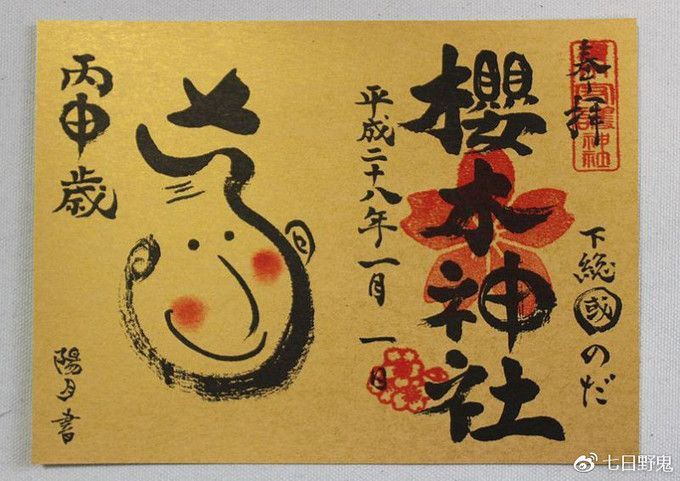 奉拝
下総國のだ
櫻木神社
平成二十八年一月一日
丙申歳
陽月書
七日野鬼